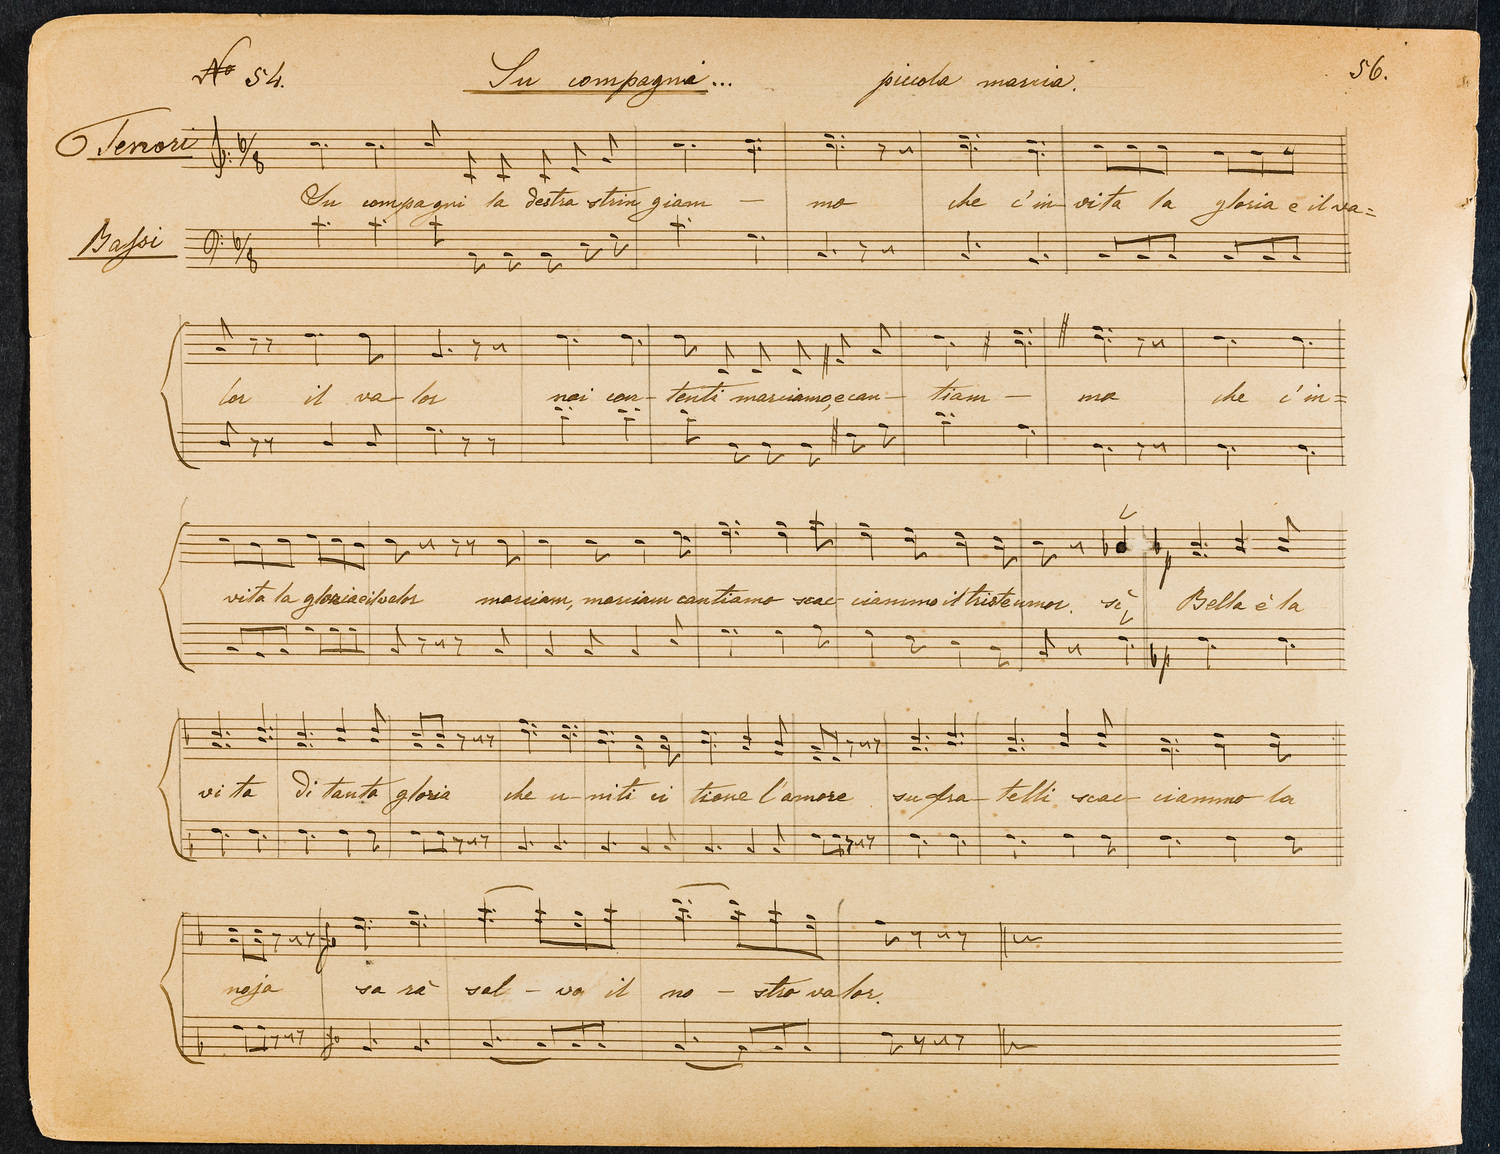 No 54. Su compagni... piccola marcia. 56.
Tenori 6/8
Su compagni la destra strin giam — mo che c'in- vita la gloria e il va=
Bassi 6/8
lor il va- lor noi con- tenti marciamo, e can- tiam — mo che c'in=
vita la gloria e il valor marciam, marciam cantiamo scac- ciammo il triste umor. sì, Bella è la
p
p
vi ta di tanta gloria che u- niti ci tiene l'amore su fra- telli scac- ciammo la
noja sa rà sal - va il no - stro valor.